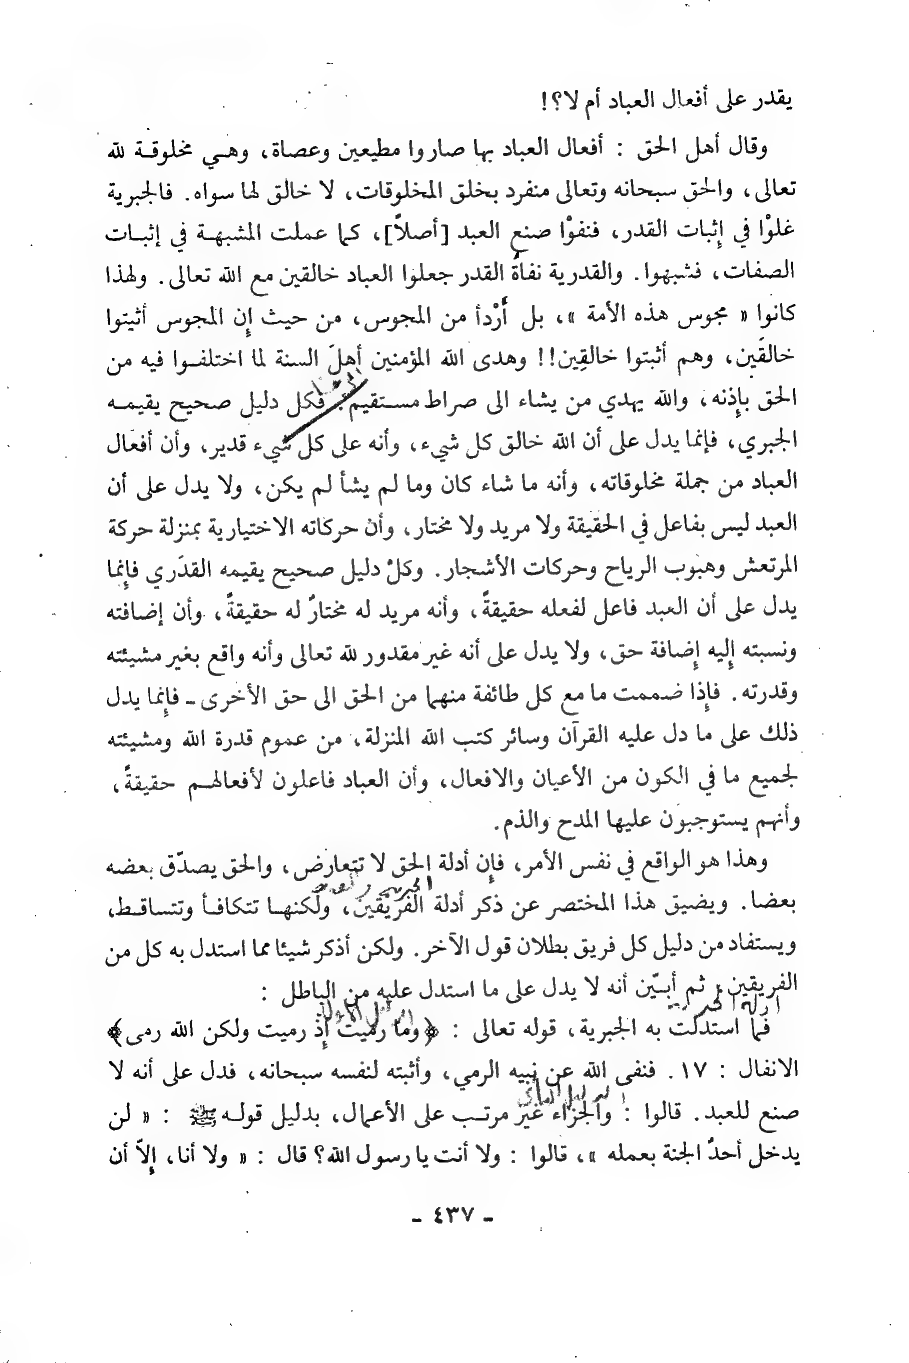 يقدر على أفعال العباد أم لا؟!
وقال أهل الحق : أفعال العباد بها صاروا مطيعين وعصاة، وهي مخلوقة لله
تعالى، والحق سبحانه وتعالى منفرد بخلق المخلوقات، لا خالق لها سواه. فالجبرية
غلوْا في إثبات القدر، فنفوْا صنع العبد [أصلاً]، كما عملت المشبهة في إثبات
الصفات، فشبهوا. والقدرية نفاةُ القدر جعلوا العباد خالقين مع الله تعالى. ولهذا
كانوا « مجوس هذه الأمة »، بل أرْدأ من المجوس، من حيث إن المجوس أثبتوا
خالقَين، وهم أثبتوا خالقِين!! وهدى الله المؤمنين أهلَ السنة لما اختلفوا فيه من
الحق بإذنه، والله يهدي من يشاء الى صراط مستقيم. فكل دليل صحيح يقيمه
الجبري، فإنما يدل على أن الله خالق كل شيء، وأنه على كل شيء قدير، وأن أفعال
العباد من جملة مخلوقاته، وأنه ما شاء كان وما لم يشأ لم يكن، ولا يدل على أن
العبد ليس بفاعل في الحقيقة ولا مريد ولا مختار، وأن حركاته الاختيارية بمنزلة حركة
المرتعش وهبوب الرياح وحركات الأشجار. وكلْ دليل صحيح يقيمه القدَري فإنما
يدل على أن العبد فاعل لفعله حقيقةً، وأنه مريد له مختارٌ له حقيقةً، وأن إضافته
ونسبته إليه إضافة حق، ولا يدل على أنه غير مقدور لله تعالى وأنه واقع بغير مشيئته
وقدرته. فإذا ضممت ما مع كل طائفة منهما من الحق الى حق الأخرى - فإنما يدل
ذلك على ما دل عليه القرآن وسائر كتب الله المنزلة، من عموم قدرة الله ومشيئته
لجميع ما في الكون من الأعيان والافعال، وأن العباد فاعلون لأفعالهم حقيقةً،
وأنهم يستوجبون عليها المدح والذم.
وهذا هو الواقع في نفس الأمر، فإن أدلة الحق لا تتعارض، والحق يصدّق بعضه
بعضا. ويضيق هذا المختصر عن ذكر أدلة الفريقين، ولكنها تتكافأ وتتساقط،
ويستفاد من دليل كل فريق بطلان قول الآخر. ولكن أذكر شيئا مما استدل به كل من
الفريقين، ثم أبيّن أنه لا يدل على ما استدل عليه من الباطل :
أدلة الجبرية
فما استدلت به الجبرية، قوله تعالى : ﴿وما رميت إذ رميت ولكن الله رمى﴾
الانفال : ١٧. فنفى الله عن نبيه الرمي، وأثبته لنفسه سبحانه، فدل على أنه لا
صنع للعبد. قالوا : والجزاء غير مرتب على الأعمال، بدليل قوله ﷺ : « لن
يدخل أحدٌ الجنة بعمله »، قالوا : ولا أنت يا رسول الله؟ قال : « ولا أنا، إلاّ أن
- ٤٣٧ -